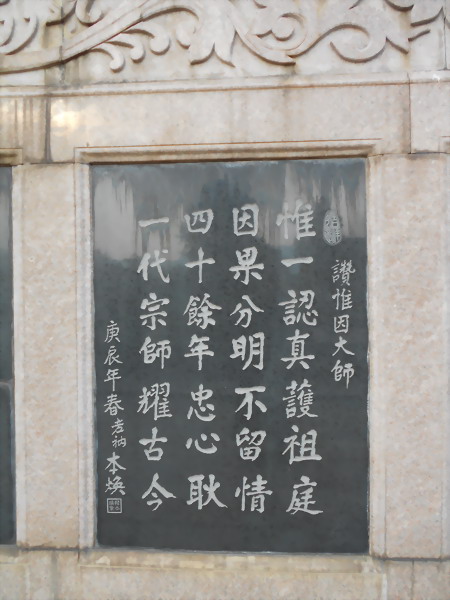 讚惟因大師
惟一認真護祖庭
因果分明不留情
四十餘年忠心耿
一代宗師耀古今
庚辰年春老衲本煥